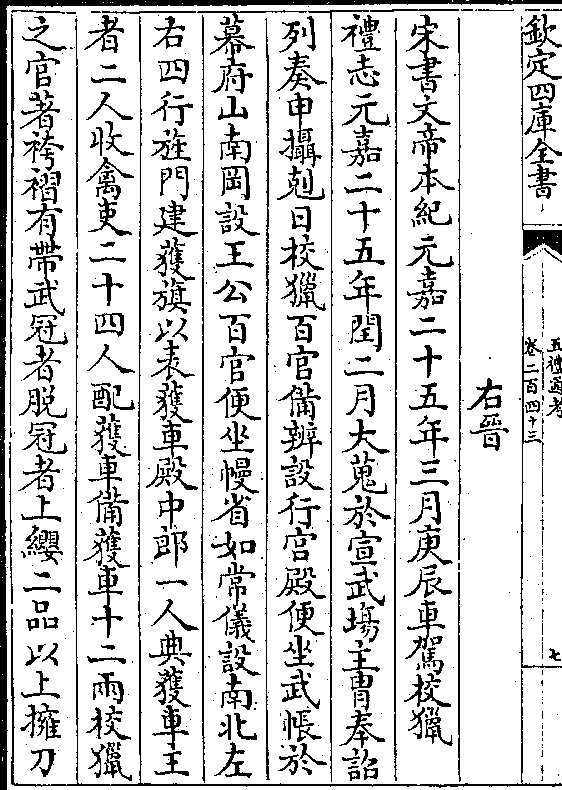 欽定四庫全書
五禮通考
卷二百四十三
七
右晉
宋書文帝本紀元嘉二十五年三月庚辰車駕校獵
禮志元嘉二十五年閏二月大蒐於宣武場主胄奉詔
列奏申攝剋日校獵百官備辨設行宫殿便坐武帳於
幕府山南岡設王公百官便坐幔省如常儀設南北左
右四行旌門建獲旗以表獲車殿中郎一人典獲車主
者二人收禽吏二十四人配獲車備獲車十二兩校獵
之官著袴褶有帶武冠者脱冠者上纓二品以上擁刀